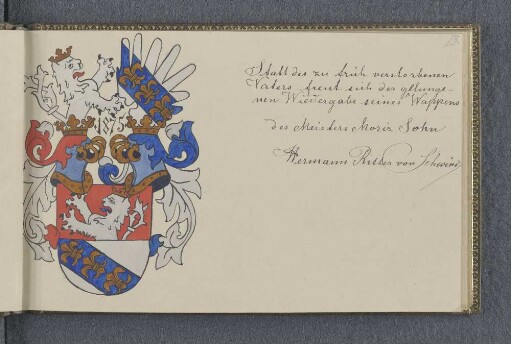 Statt des zu früh verstorbenen
Vaters freut sich der gelunge-
nen Wiedergabe seines Wappens
des Meisters Moriz Sohn
Hermann Ritter von